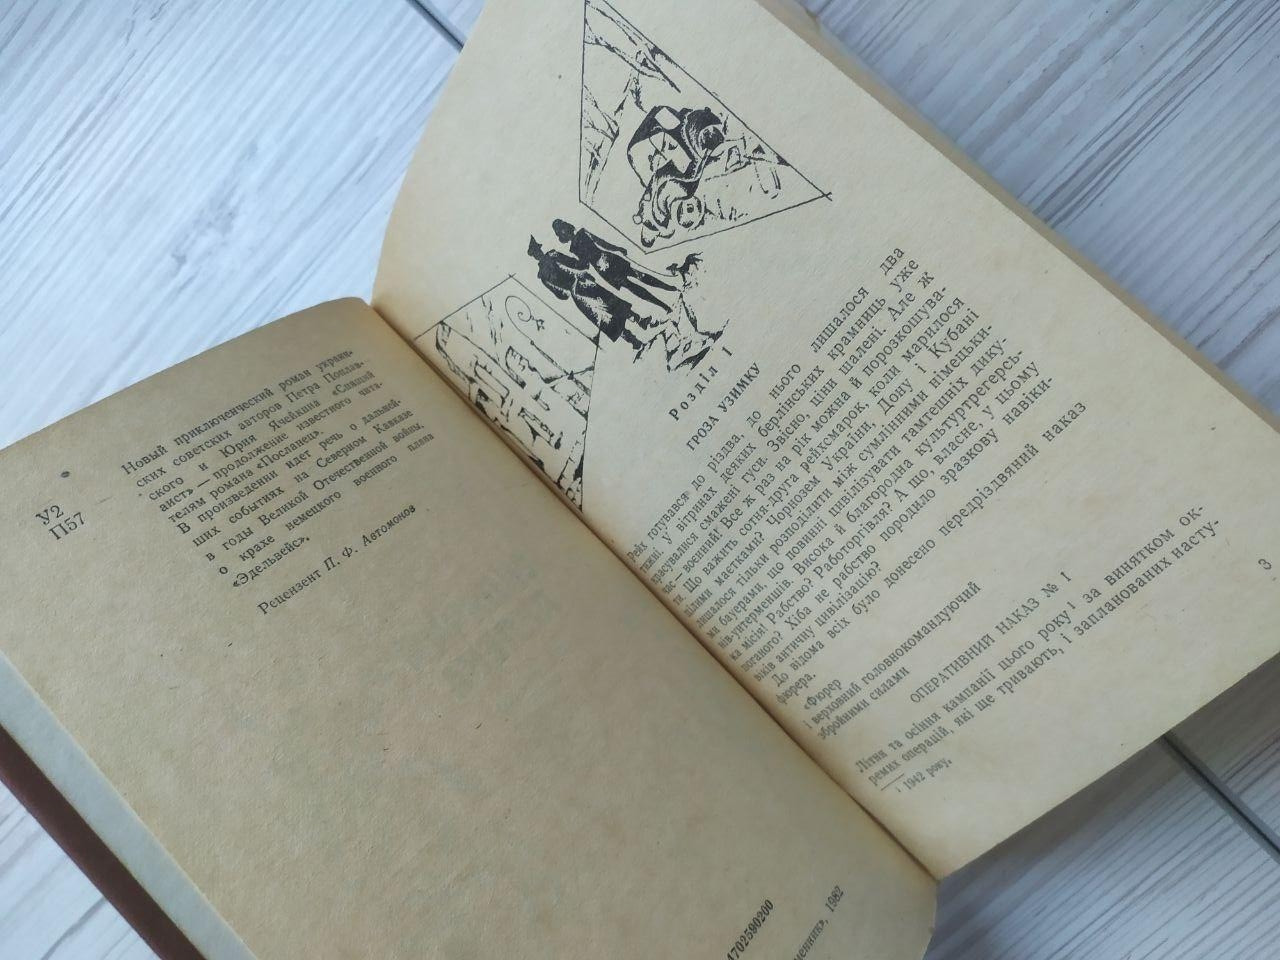 У2
П57
Новый приключенческий роман украин-
ских советских авторов Петра Поплав-
ского и Юрия Ячейкина «Спящий
аист» — продолжение известного чита-
телям романа «Посланец».
В произведении идет речь о дальней-
ших событиях на Северном Кавказе
в годы Великой Отечественной войны,
о крахе немецкого военного плана
«Эдельвейс».
Рецензент П. Ф. Автомонов
4702590200
менник», 1982
Розділ I
ГРОЗА УЗИМКУ
Рейх готувався до різдва, до нього лишалося два
тижні. У вітринах деяких берлінських крамниць уже
красувалися смажені гуси. Звісно, ціни шалені. Але ж
час — воєнний! Все ж раз на рік можна й порозкошува-
ти. Що важить сотня-друга рейхсмарок, коли марилося
цілими маєтками? Чорнозем України, Дону і Кубані
лишалося тільки розподілити між сумлінними німецьки-
ми бауерами, що повинні цивілізувати тамтешніх дику-
нів-унтерменшів. Висока й благородна культуртрегерсь-
ка місія! Рабство? Работоргівля? А що, власне, у цьому
поганого? Хіба не рабство породило зразкову навіки-
віків античну цивілізацію?
До відома всіх було донесено передріздвяний наказ
фюрера.
«Фюрер
і верховний головнокомандуючий
збройними силами
ОПЕРАТИВНИЙ НАКАЗ № 1
Літня та осіння кампанії цього року ¹ за винятком ок-
ремих операцій, які ще тривають, і запланованих насту-
¹ 1942 року.
3